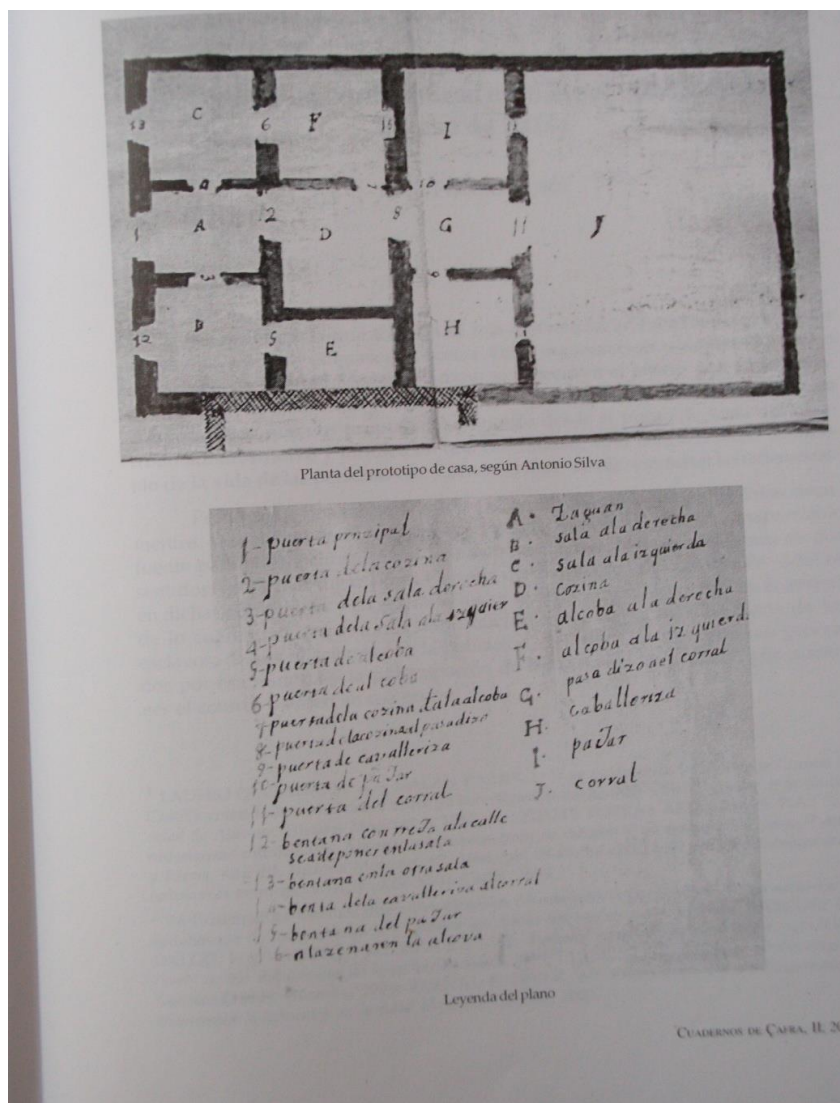 C
6
F
I
13
4
10
1
A
2
D
8
G
11
J
3
9
12
B
5
E
H
Planta del prototipo de casa, según Antonio Silva
1- puerta prnzipal
2- puerta dela cozina
3- puerta dela sala derecha
4- puerta dela sala ala izquier
5- puerta de alcoba
6- puerta de al coba
7- puerta dela cozina
8- puerta dela cozina al pasadizo
9- puerta de cavalleriza
10- puerta de paJar
11- puerta del corral
12- bentana con rreJa ala calle
se a de poner en la sala
13- bentana en la otra sala
benta dela cavalleriza al corral
15- bentana del paJar
16- alazena en la alcova
A. Zaguan
B. sala ala derecha
C. sala ala izquierda
D. Cozina
E. alcoba ala derecha
F. alcoba ala izquierd.
G. pasadizo a el corral
H. caballeriza
I. paJar
J. corral
Leyenda del plano
CUADERNOS DE ÇAFRA, II, 20